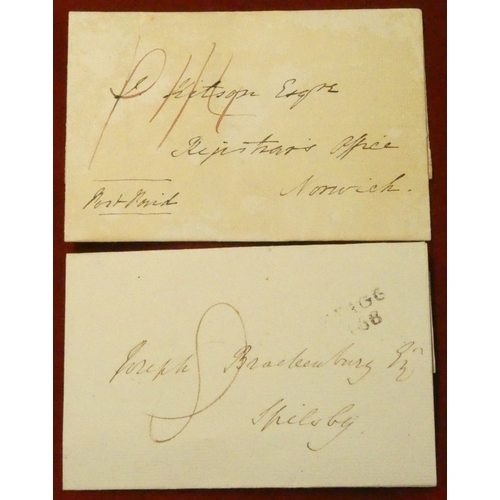 Kitson Esqre
Registrar's Office
Norwich.
Post Paid
168
Joseph Brackenbury Esq
8
Spilsby